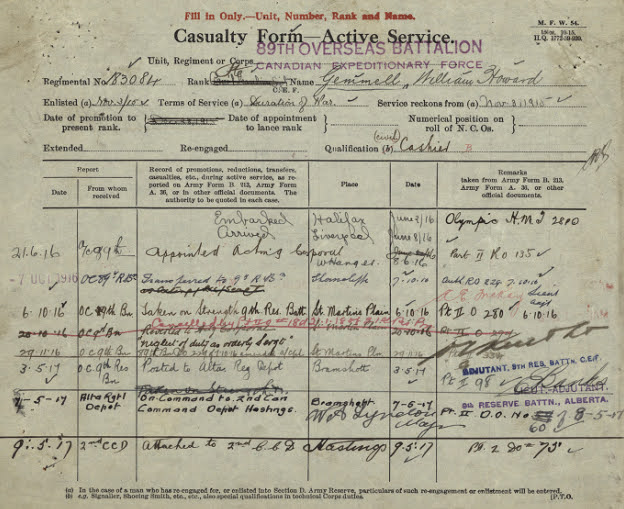 Fill in Only.—Unit, Number, Rank and Name.
M. F. W. 54.
Casualty Form—Active Service.
Unit, Regiment or Corps 89TH OVERSEAS BATTALION
CANADIAN EXPEDITIONARY FORCE
Regimental No. 183084 Rank Name Gemmell, William Howard
C.E.F.
Enlisted (a) Nov. 3/15 Terms of Service (a) Duration of War. Service reckons from (a) Nov. 3/1915
Date of promotion to present rank. Date of appointment to lance rank Numerical position on roll of N. C. Os.
Extended Re-engaged Qualification (b) (civil) Cashier B
Report
Date
From whom received
Record of promotions, reductions, transfers, casualties, etc., during active service, as reported on Army Form B. 213, Army Form A. 36, or in other official documents. The authority to be quoted in each case.
Place
Date
Remarks taken from Army Form B. 213, Army Form A. 36, or other official documents.
Embarked Halifax June 2/16 Olympic H.M.T 2810
Arrived Liverpool June 8/16
21.6.16 Appointed Acting Corporal 8-6-16 Part II R O 135
7 OCT 1916 OC 89th R Bn Transferred to 9th R Bn Shorncliffe 7.10.16 Auth RO 228 7.10.16
6-10-16 OC 9th Bn Taken on Strength 9th Res. Batt St Martins Plain 6.10.16 Pt II O 280 6.10.16
20-10-16 OC 9th Bn St Martins Pln Pt II O 294
neglect of duty as orderly Sergt.
29-11-16 OC 9th Bn St Martins Pln 29.11.16
3.5.17 OC 9th Res Bn Posted to Altas Reg Depot Bramshott 3.5.17 Pt II 98
ADJUTANT, 9TH RES. BATTN. C.E.F.
LIEUT.-ADJUTANT.
9th RESERVE BATTN., ALBERTA.
-5-17 Alta Rgtl Depot On Command to 2nd Can Command Depot Hastings. Bramshott 7-5-17 Pt. II D.O. No 60 8-5-17
9.5.17 2nd CCD Attached to 2nd C.C.D Hastings 9.5.17 Pt. 2 DO 75
(a) In the case of a man who has re-engaged for, or enlisted into Section D. Army Reserve, particulars of such re-engagement or enlistment will be entered.
(b) e.g. Signaller, Shoeing Smith, etc., etc., also special qualifications in technical Corps duties.
[P.T.O.